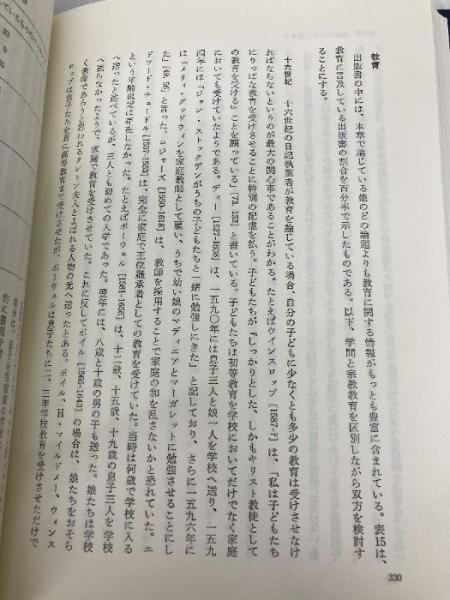 教育
出版書の中には、本章で論じている他のどの論題よりも教育に関する情報がもっとも豊富に含まれている。表15は、
教育に言及している出版書の割合を百分率で示したものである。以下、学問と宗教教育を区別しながら双方を検討す
ることにする。
十六世紀 十六世紀の日記執筆者が教育を論じている場合、自分の子どもに少なくとも多少の教育は受けさせなけ
ればならないというのが最大の関心事であることがわかる。たとえばウインスロップ〔1587-?〕は、「私は子どもたち
にりっぱな教育を受けさせることに特別の配慮を払う。子どもたちが『しっかりとした、しかもキリスト教徒として
の教育を受ける』ことを願っている」(73, 152)と書いている。子どもたちは初等教育を学校においてだけでなく家庭
においても受けていたようである。ディー〔1527-1608〕は、一五九〇年には息子三人と娘一人を学校へ送り、一五九
四年には「ジョン・ストックデンがうちの子どもたちと一緒に勉強しにきた」と記しており、さらに一五九六年に
は「メリィ・グッドウィンを家庭教師として雇い、うちで幼い娘のマディニアとマーガレットに勉強させることにし
た」(49, 56)と言った。ロジャーズ〔1550-1618〕は、教師を採用することで家庭の和を乱さないかと恐れていた。エ
ドワード・チュードル〔1537-1553〕は、完全に家庭で王位継承者としての教育を受けていた。当時は何歳で学校に入る
という年齢規定は存在しなかった。たとえばポーウェル〔1581-1656〕は、十二歳、十五歳、十九歳の息子三人を学校
へ送ったと述べているが、三人とも初めての入学であった。翌年には、八歳と十歳の男の子も送った。娘たちは学校
へ送らなかったようで、家庭で教育を受けさせていた。これに反してボイル〔1566-1643〕の場合は、娘たちをおそら
く教師であろうと思われるクレトン夫人とよばれる人物の元へ送ったとある。ボイル、H・マイルドメー、ウィンス
ロップは息子たち全員に高等教育まで受けさせたが、ポーウェルは息子たちに二、三年学校教育を受けさせただけで
330